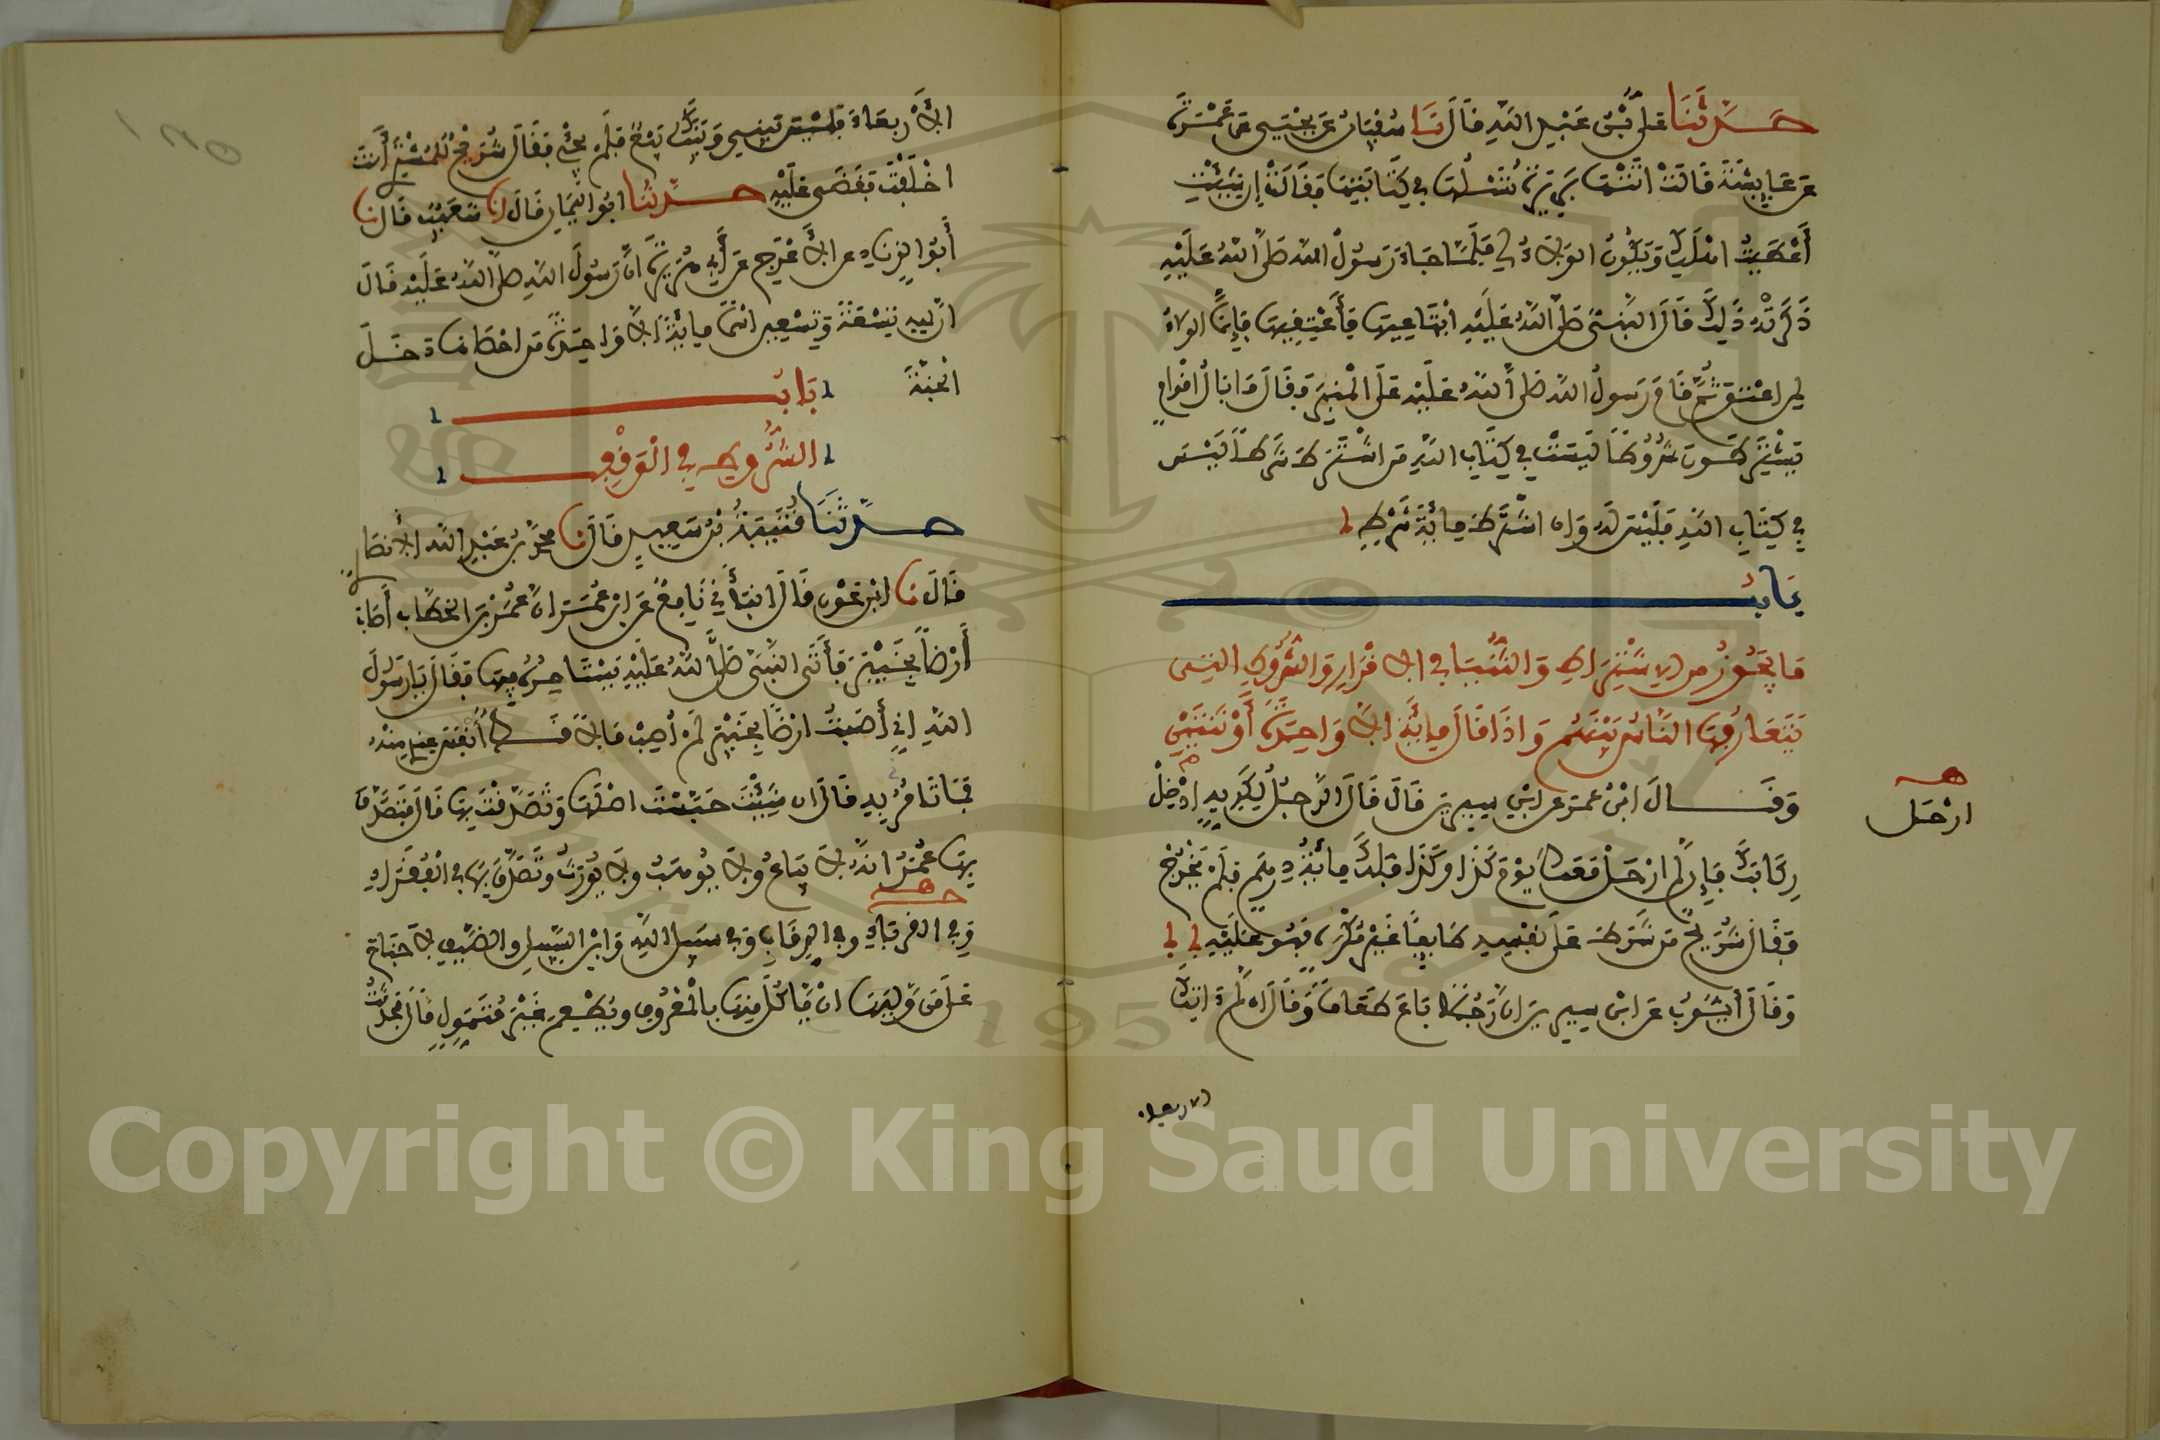 حدثنا علي بن عبد الله قال نا سفيان عن يحيى عن عمرة
عن عايشة قالت اتتها بريرة تسئلها في كتابتها فقالت ان شئت
أعطيت اهلك ويكون الولاء لي فلما جاء رسول الله صلى الله عليه
ذكرته ذلك قال النبي صلى الله عليه ابتاعيها فأعتقيها فإنما الولاء
لمن اعتق ثم قام رسول الله صلى الله عليه على المنبر فقال ما بال اقوام
يشترطون شروطا ليست في كتاب الله من اشترط شرطا ليس
في كتاب الله فليس له وان اشترط مائة شرط
باب
ما يجوز من الاشتراط والثنيا في الاقرار والشروط التي
يتعارفها الناس بينهم واذا قال مائة الا واحدة أو ثنتين
وقال ابن عون عن ابن سيرين قال قال الرجل لكريه ادخل
ارحل
ركابك فإن لم ارحل معك يوم كذا وكذا فلك مائة درهم فلم يخرج
فقال شريح من شرط على نفسه طايعا غير مكره فهو عليه
وقال أيوب عن ابن سيرين ان رجلا باع طعاما وقال ان لم اتك
الاربعاء
الأربعاء فليس بيني وبينك بيع فلم يجئ فقال شريح للمشتري أنت
اخلفت فقضى عليه حدثنا ابو اليمان قال انا شعيب قال نا
أبو الزناد عن الأعرج عن أبي هريرة ان رسول الله صلى الله عليه قال
ان لله تسعة وتسعين اسما مائة الا واحدة من احصاها دخل
الجنة
باب
الشروط في الوقف
حدثنا قتيبة بن سعيد قال نا محمد بن عبد الله الأنصاري
قال نا ابن عون قال انبأني نافع عن ابن عمر ان عمر بن الخطاب أصاب
أرضا بخيبر فأتى النبي صلى الله عليه يستامره فيها فقال يا رسول
الله اني أصبت ارضا بخيبر لم أصب مالا قط أنفس عندي منه
فما تامر به قال ان شئت حبست اصلها وتصدقت بها قال فتصدق
بها عمر انه لا يباع ولا يوهب ولا يورث وتصدق بها في الفقراء
وفي القربى وفي الرقاب وفي سبيل الله وابن السبيل والضيف لا جناح
على من وليها ان ياكل منها بالمعروف ويطعم غير متمول قال فحدثت
Copyright © King Saud University
1957